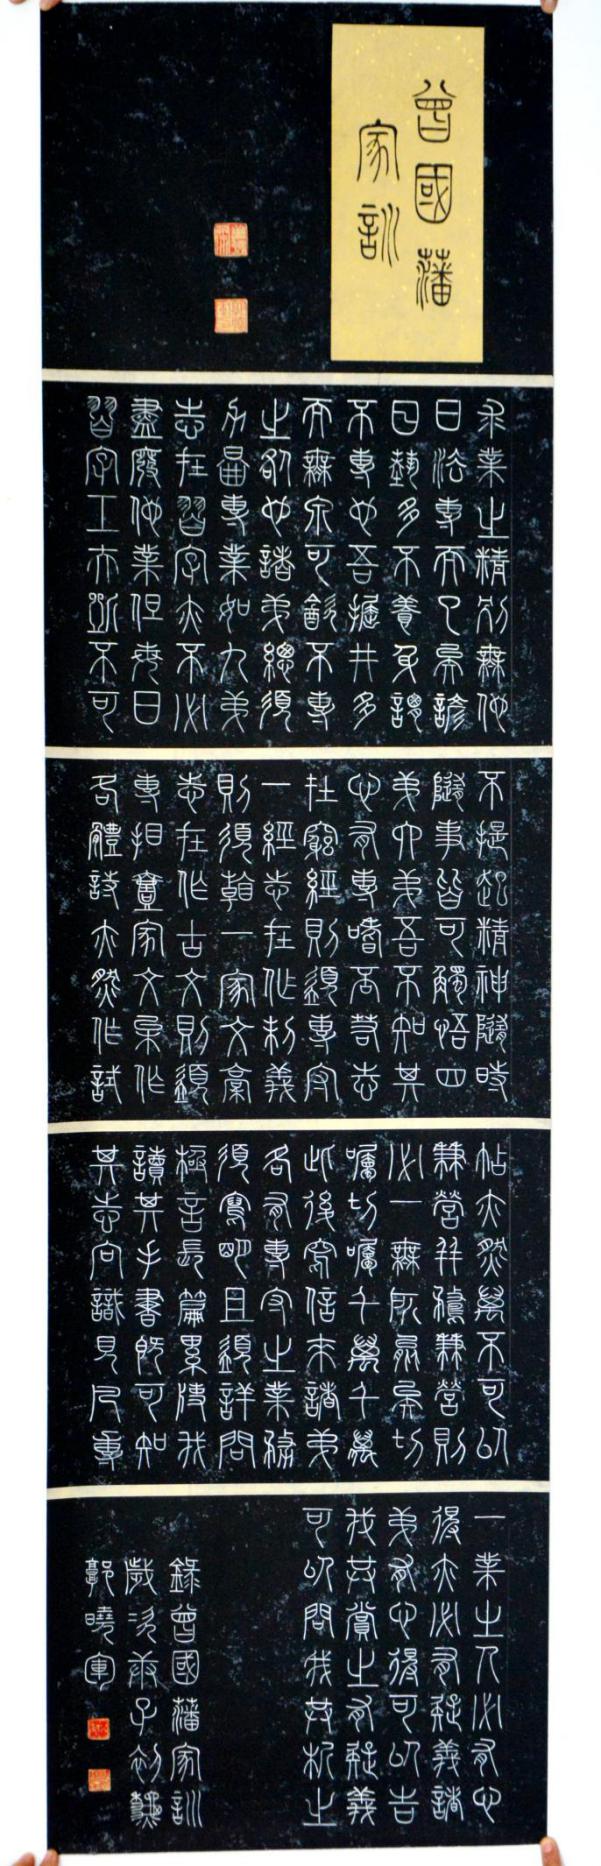 曾國藩
家訓
求業之精別無他
曰法專而已矣諺
曰藝多不養身謂
不專也吾掘井多
而無泉可飲不專
之咎也諸弟總須
力圖專業如九弟
志在習字亦不必
盡廢他業但每日
習字工夫斷不可
不提起精神隨時
隨事皆可觸悟四
弟六弟吾不知其
心有專嗜否若志
在窮經則須專守
一經志在作制義
則須看一家文稿
志在作古文則須
專看壹家文集作
各體詩亦然作試
帖亦然萬不可以
兼營并騖兼營則
必一無所能矣切
囑切囑千萬千萬
此後寫信來諸弟
各有專守之業務
須寫明且須詳問
極言長篇累使我
讀其手書即可知
其志向識見凡專
一業之人必有心
得亦必有疑義諸
弟有心得可以告
我共賞之有疑義
可以問我共析之
錄曾國藩家訓
歲次庚子初龝
郭曉軍